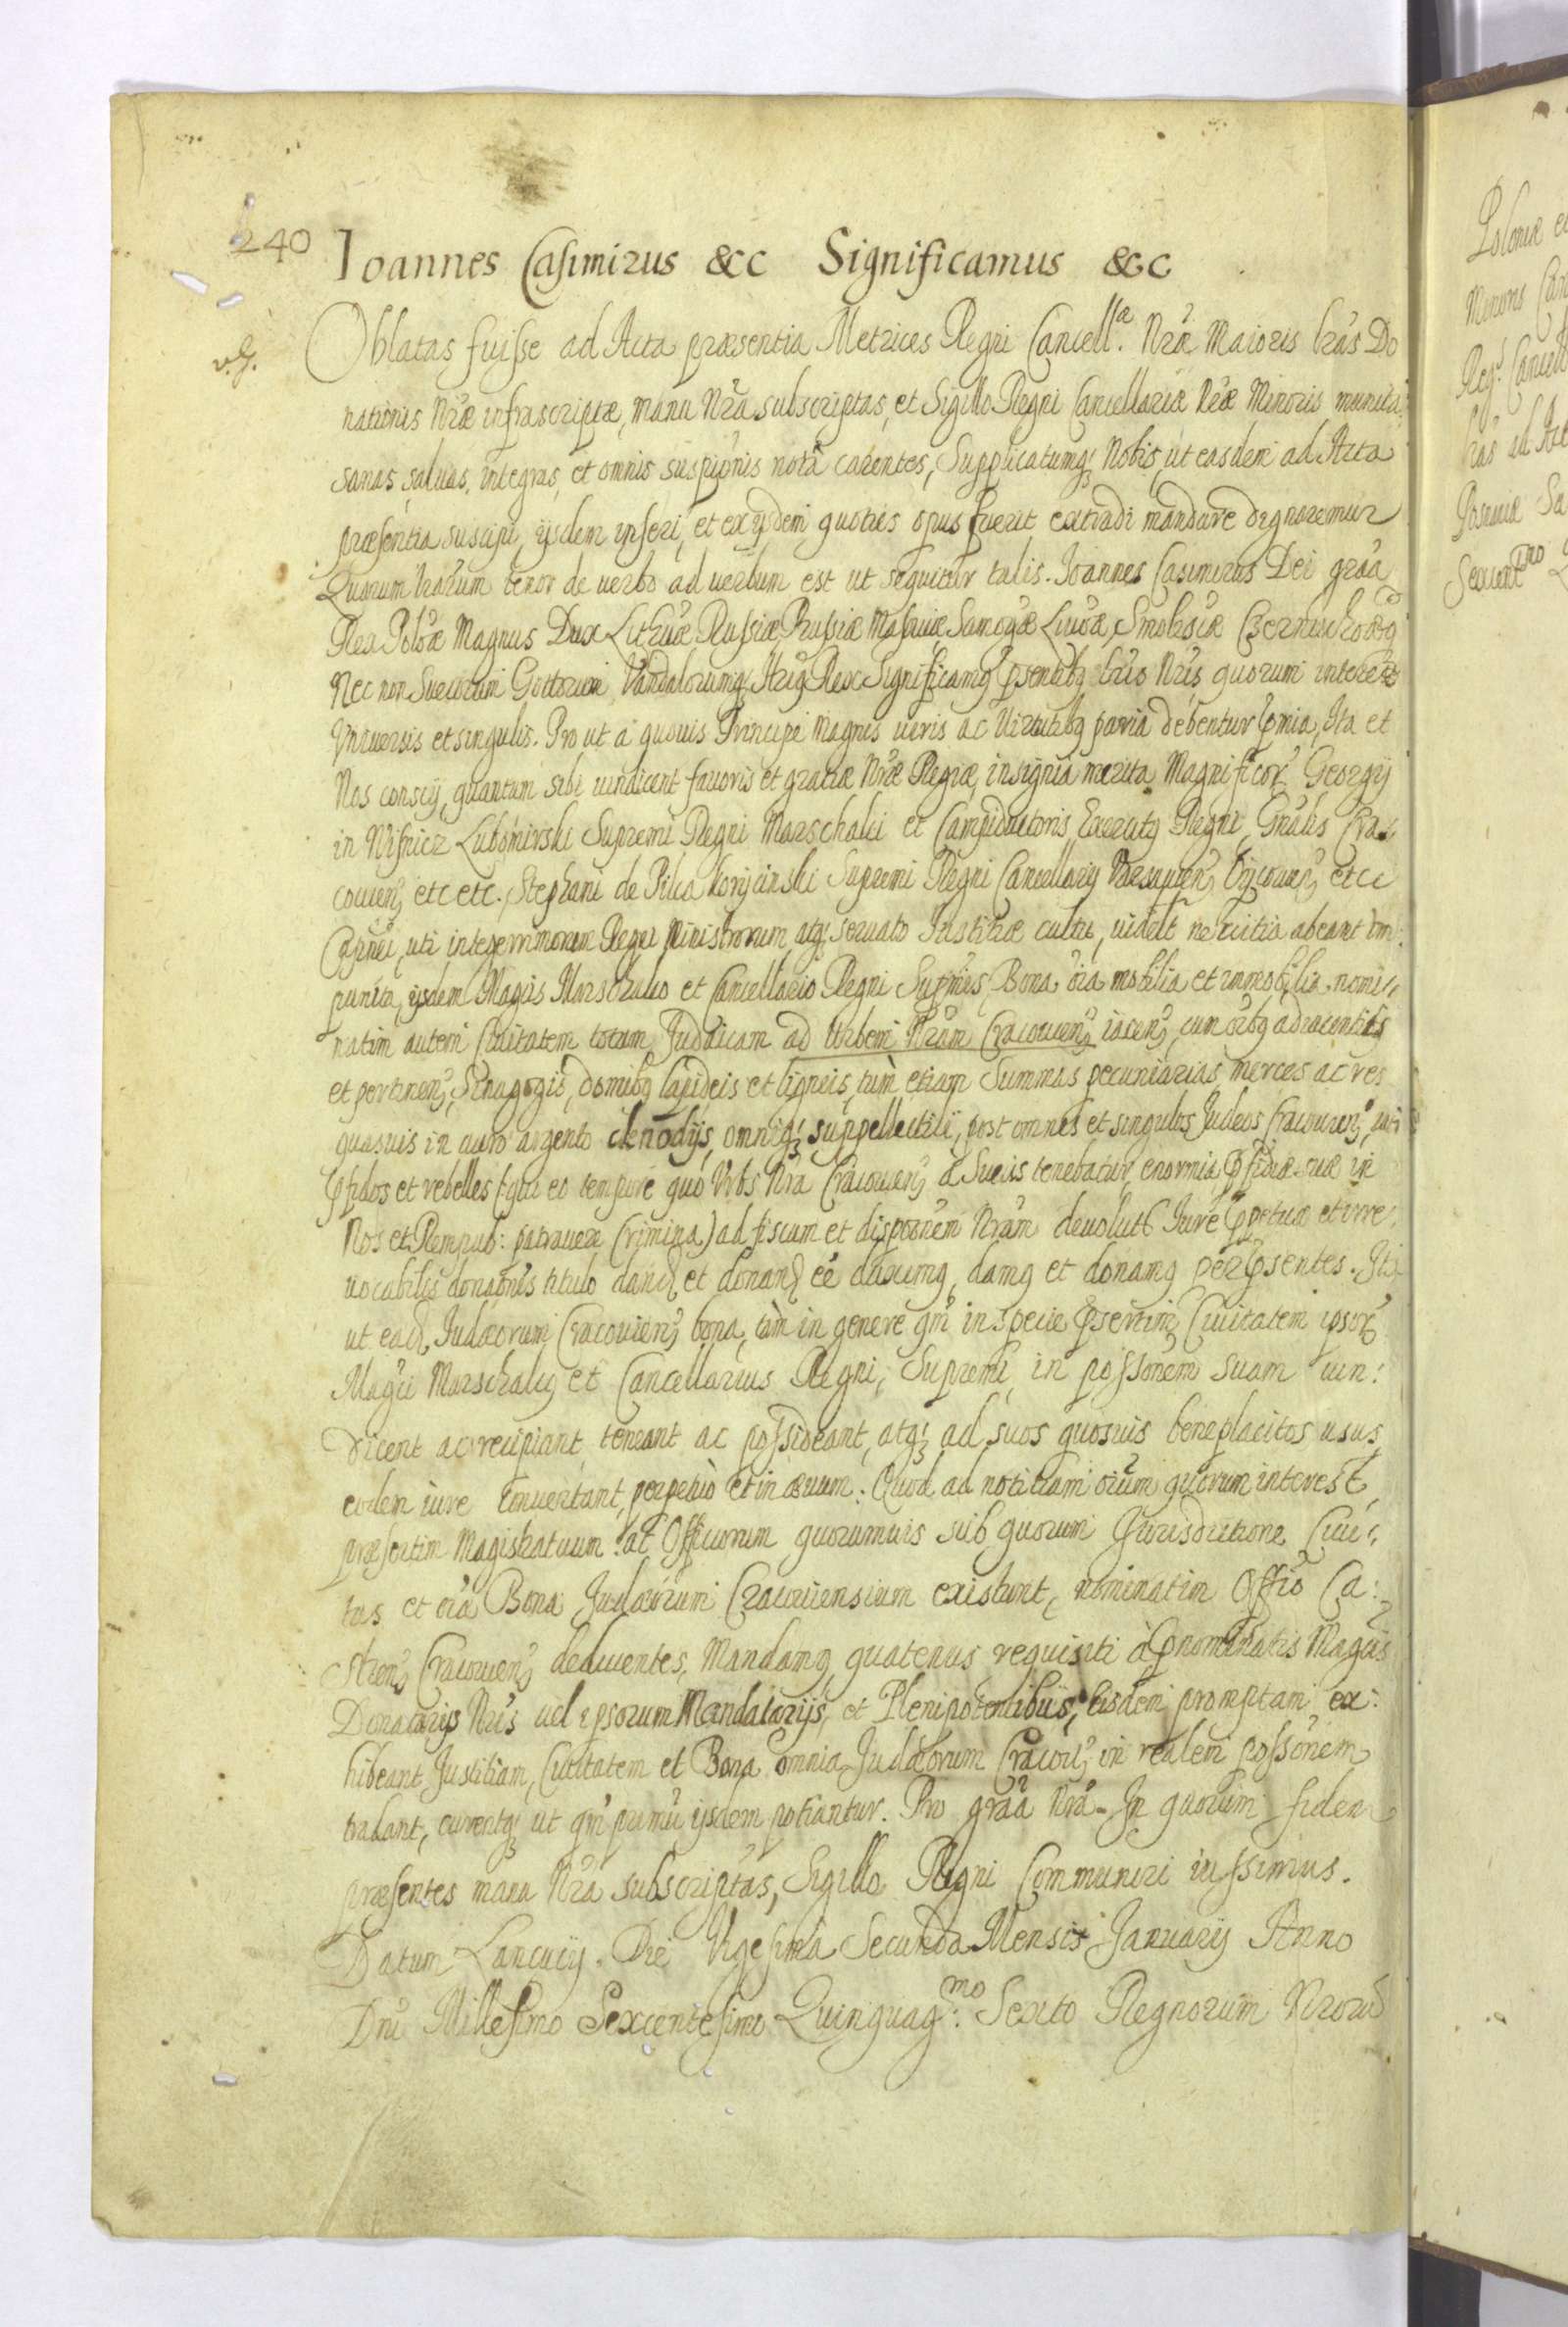 240 Ioannes Casimirus &c Significamus &c
v.g. Oblatas fuisse ad Acta præsentia Metrices Regni Cancell.a Nræ Maioris lras Do
nationis Nræ infrascriptæ, manu Nra subscriptas, et Sigillo Regni Cancellariæ Nræ Minoris munitas
sanas, saluas, integras, et omnis suspionis nota carentes, Supplicatumq Nobis, ut easdem ad Acta
præsentia suscipi, ijsdem inseri, et ex ijsdem quoties opus fuerit extradi mandare dignaremur
Quarum lrarum tenor de uerbo ad uerbum est ut sequitur talis. Ioannes Casimirus Dei graa
Rex Poloæ Magnus Dux Lithuæ Russiæ Prussiæ Masouiæ Samogæ Liuoæ, Smolesciæ Czerniechoæq
Nec non Suecorum Gottorum Vandalorumq Hrigs Rex Significamq psentibq lris Nris quorum interest
Vniuersis et singulis. Pro ut a quouis Principe magnis ueris ac Virtutibq paria debentur pmia, Ita et
Nos conscij, quantum sibi uindicent fauoris et gratiæ Nræ Regiæ, insignia merita Magnificor Georgij
in Wisnicz Lubomirski Supremi Regni Marschalci et Campiductoris Exercitq Regni, Gnalis Cra
couien etc etc. Stephani de Pilca Korycinski Supremi Regni Cancellarij Ojcouien etc
Capnei, uti integerrimorum Regni Ministrorum, atq seruato Iustitiæ cultu, uidelt ne uitia abeant im:
punita, ijsdem Magcis Marschalco et Cancellario Regni Suprmis, Bona oia mobilia et immobilia nomi
natim autem Ciuitatem totam Iudaicam ad Urbem Nram Cracouien iacen, cum oibq adiacentijs
et pertinen, Sinagogis, domibq lapideis et ligneis, tum etiam Summas pecuniarias merces ac res
quasuis in auro argento clenodijs, omniq suppellectili, post omnes et singulos Iudeos Cracouien, uti
pfidos et rebelles (qui eo tempore quo Vrbs Nra Cracouien a Suecis tenebatur, enormia pfidiæ suæ in
Nos et Rempub: patrauere Crimina) ad fiscum et disponem Nram deuoluta Iure ppetuæ et irre
uocabilis donaonis titulo dand et donand ee duximq, damq et donamq per psentes. Ita
ut ead Iudæorum Cracouien bona, tam in genere qm in specie psertim Ciuitatem ipsor
Magci Marschalcq et Cancellarius Regni, Supremi, in possonem suam uin:
dicent ac recipiant, teneant ac possideant, atq ad suos quosuis beneplacitos usus,
eodem iure conuertant, perpetuo et in æuum. Quod ad notitiam oium quorum interest,
præsertim Magistratuum ac Officiorum quorumuis sub quorum Iurisdictione Ciui
tas et oia Bona Iudæorum Cracouiensium existunt, nominatim Offio Ca:
stren Cracouien deducentes, Mandamq quatenus requisiti a pnominatis Magcis
Donatarijs Nris uel ipsorum Mandatarijs, et Plenipotentibus, eisdem promptam ex:
hibeant Iustitiam, Ciuitatem et Bona omnia Iudæorum Cracou in realem possonem
tradant, curentq ut qm primu ijsdem potiantur. Pro graa Nra. In quorum fidem
præsentes manu Nra subscriptas, Sigillo Regni Communiri iussimus.
Datum Lancucij. Die Vigesima Secunda Mensis Ianuarij Anno
Dni Millesimo Sexcentesimo Quinquag:mo Sexto Regnorum Nror